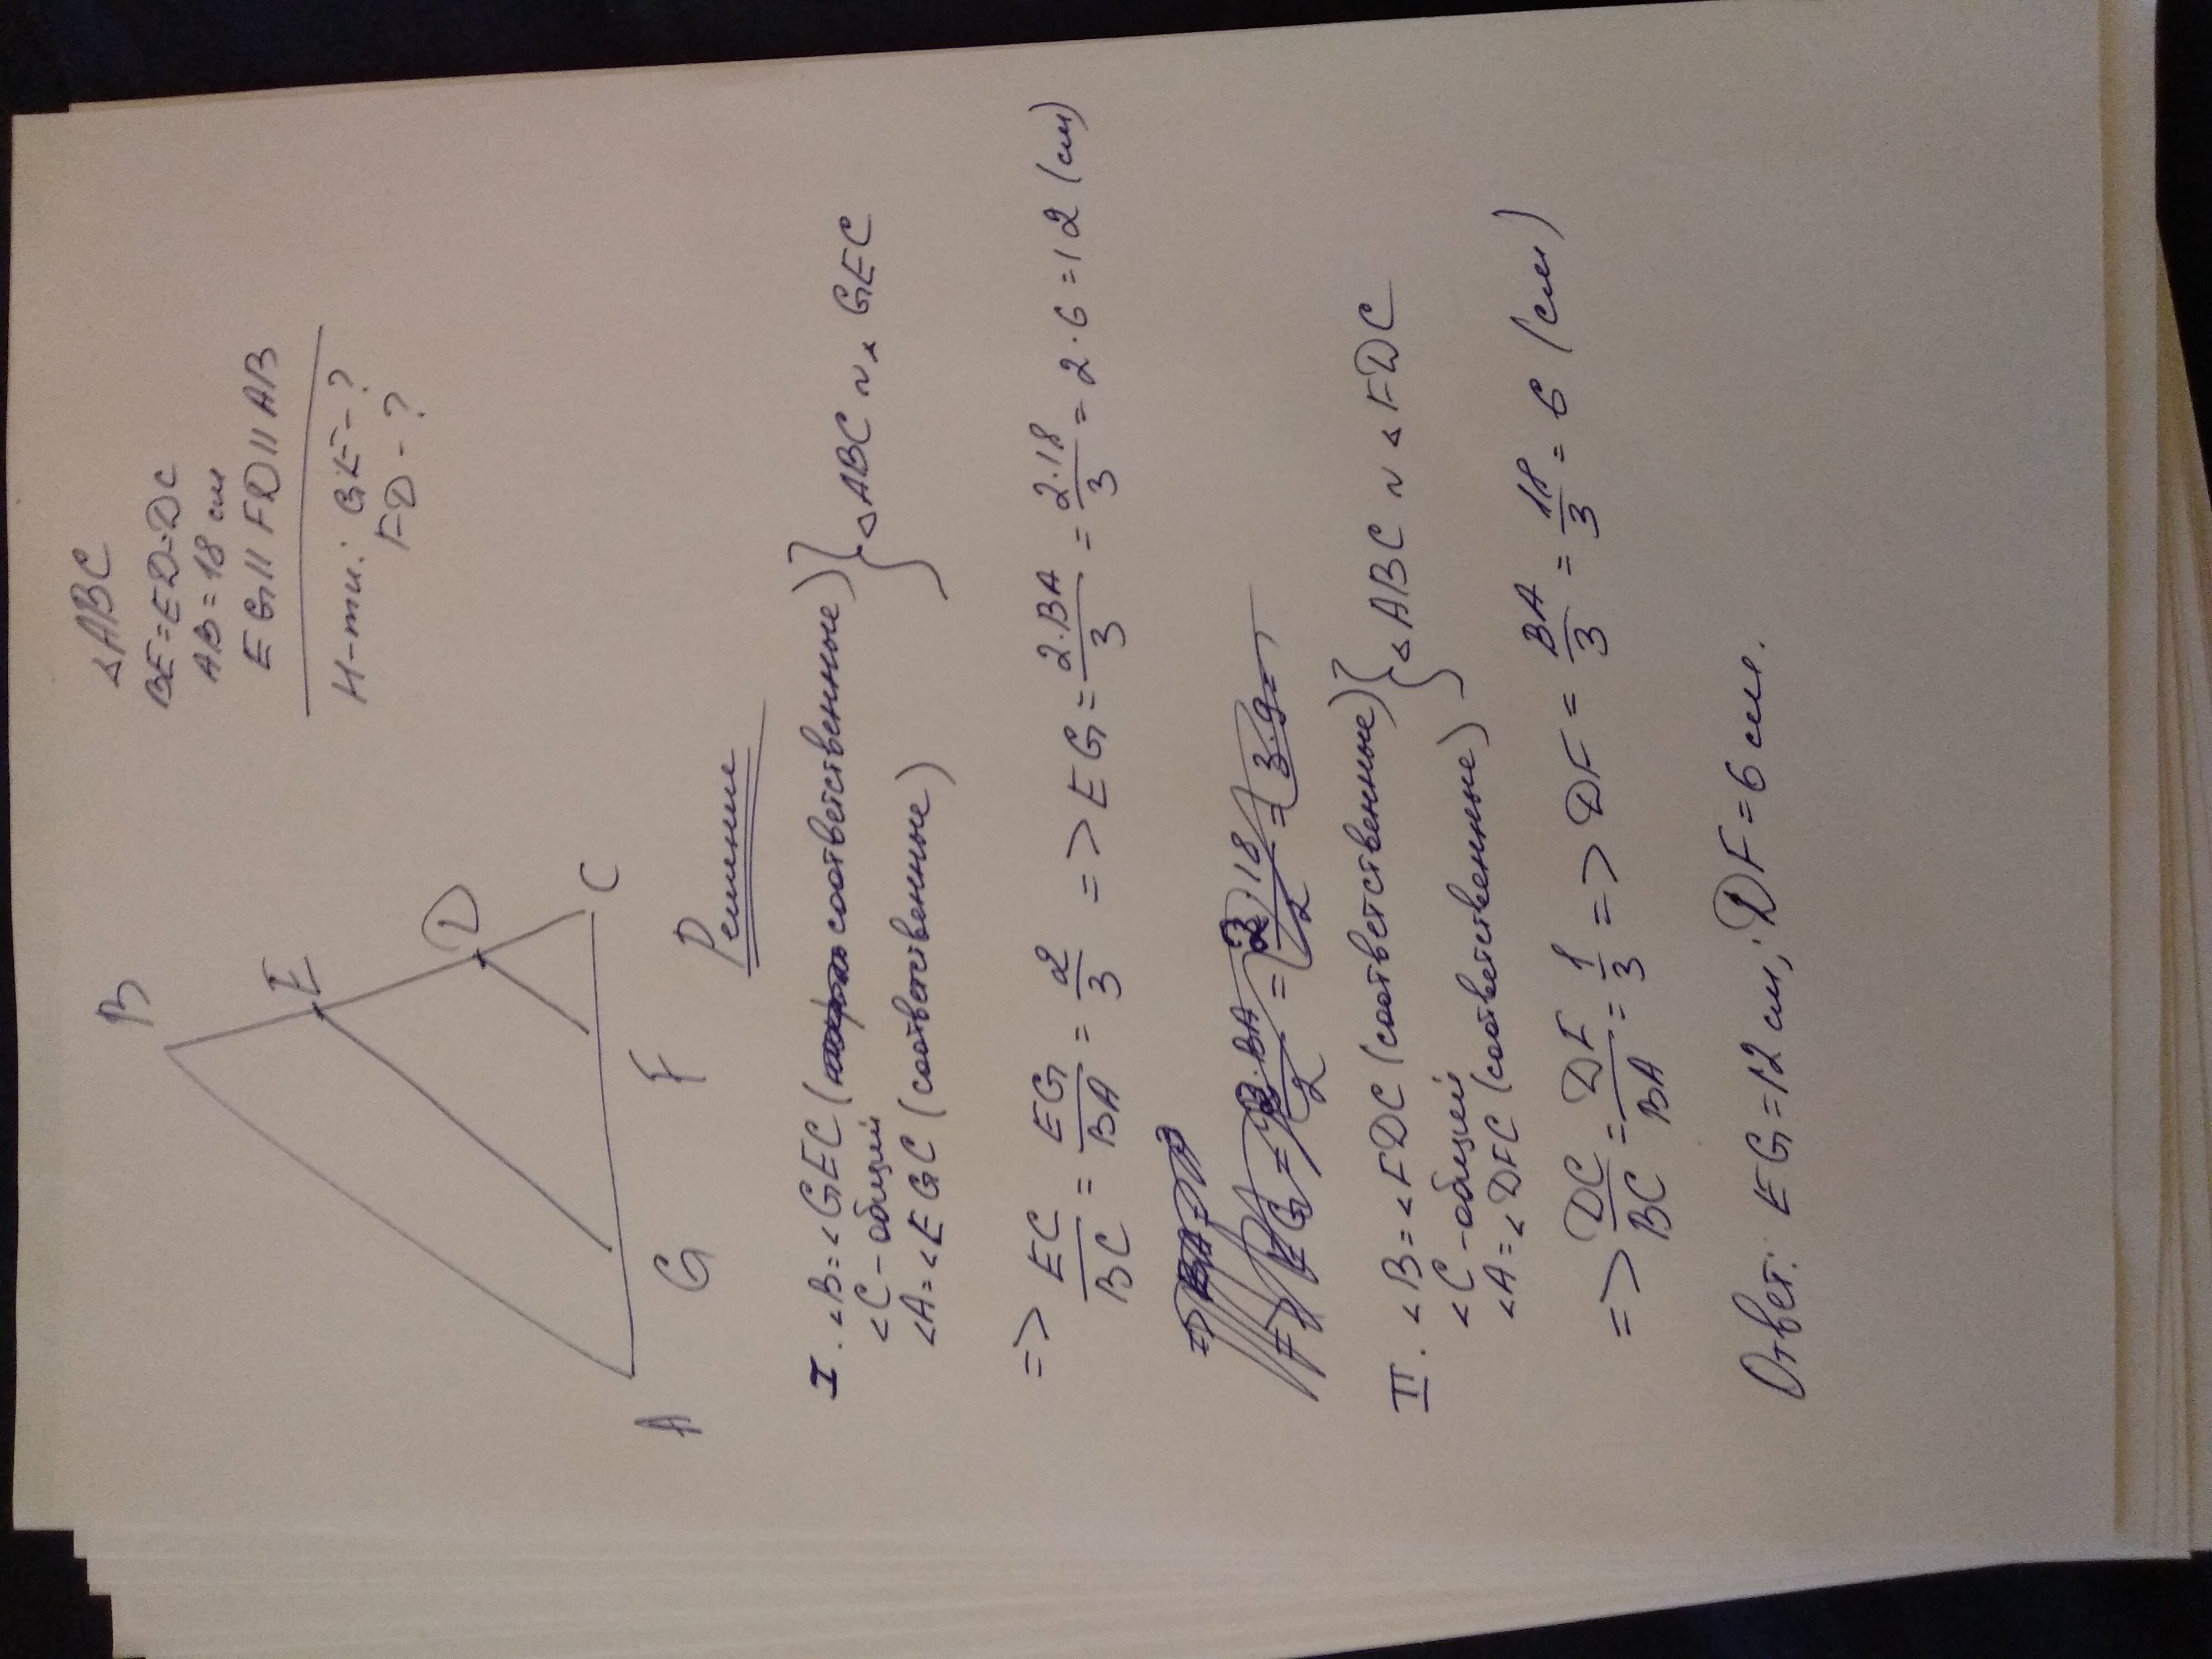 △ABC
BE=ED=DC
AB=18 см
EG∥FD∥AB
Н-ти: GE-?
FD-?
B
E
D
C
A
G
F
Решение
I. ∠B=∠GEC (соответственные)
∠C-общий
∠A=∠EGC (соответственные)
} △ABC ~ △GEC
=> EC/BC = EG/BA = 2/3 => EG = 2·BA/3 = 2·18/3 = 2·6=12 (см)
II. ∠B=∠FDC (соответственные)
∠C-общий
∠A=∠DFC (соответственные)
} △ABC ~ △FDC
=> DC/BC = DF/BA = 1/3 => DF = BA/3 = 18/3 = 6 (см)
Ответ: EG=12 см; DF=6 см.